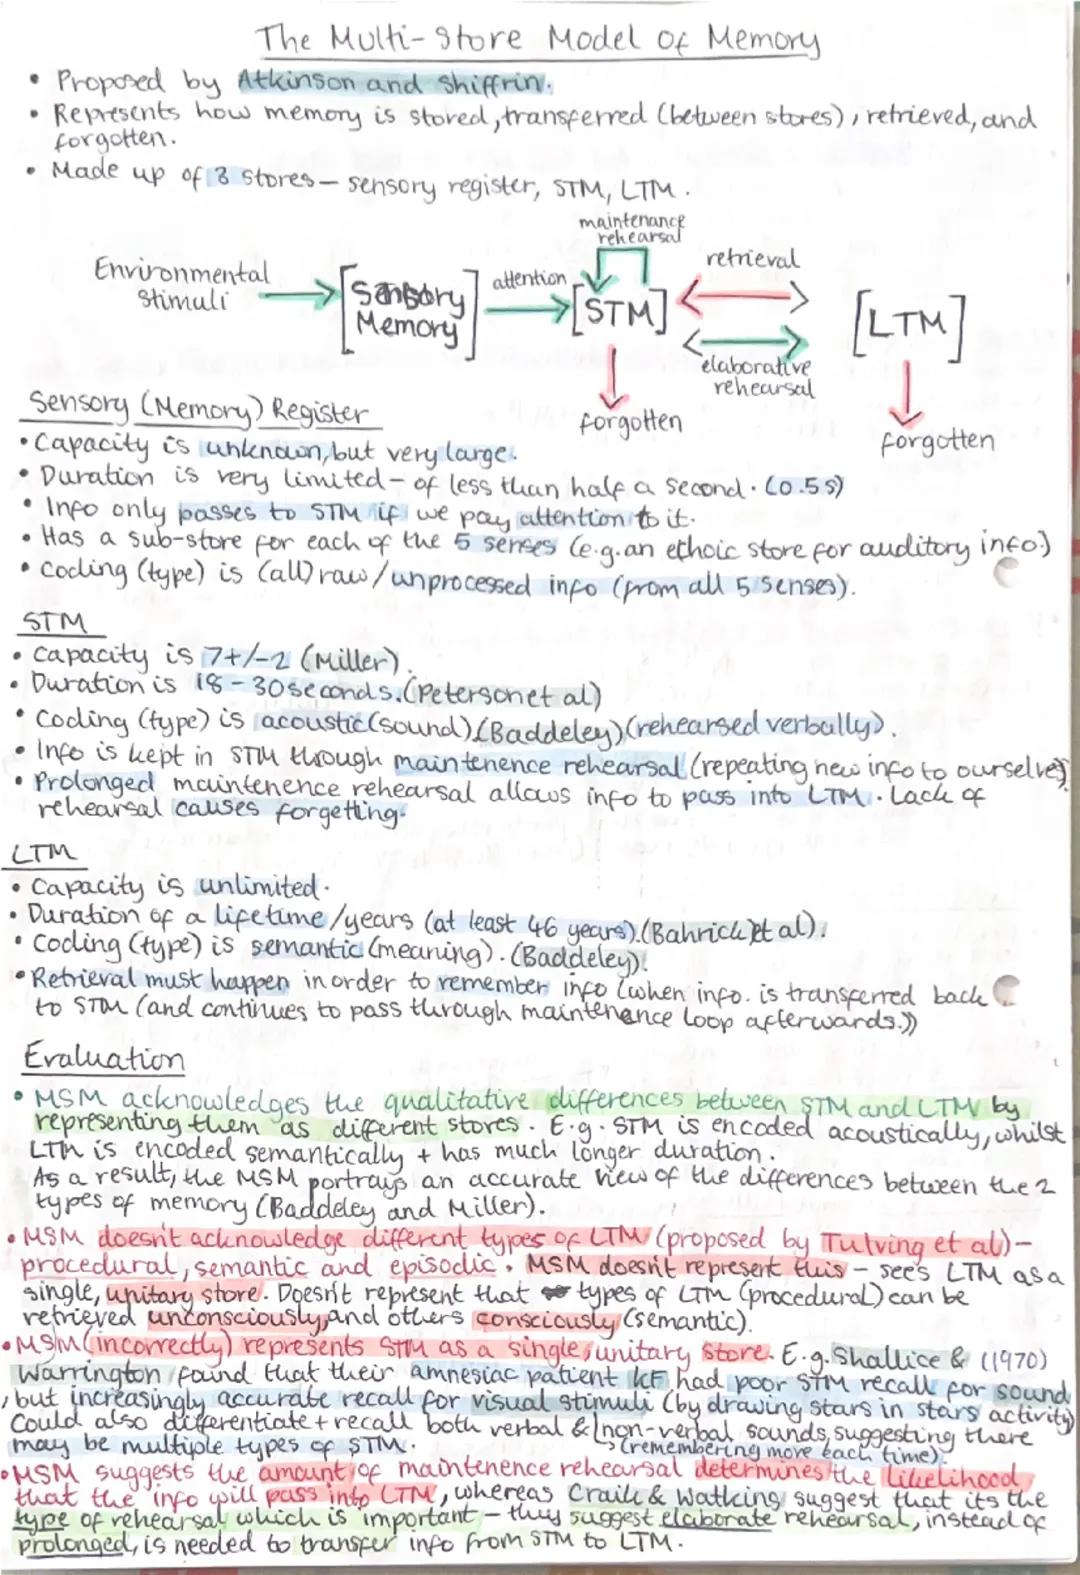 The Multi-Store Model of Memory
• Proposed by Atkinson and Shiffrin.
• Represents how memory is stored, transferred (between stores), retrieved, and
forgotten.
• Made up of 3 stores - sensory register, STM, LTM.
maintenance
rehearsal
Environmental
stimuli
[Sensory
Memory]
attention
[STM]
retrieval
[LTM]
elaborative
rehearsal
forgotten
forgotten
Sensory (Memory) Register
• Capacity is unknown, but very large.
• Duration is very limited - of less than half a second. (0.5s)
• Info only passes to STM if we pay attention to it.
• Has a sub-store for each of the 5 senses (e.g. an echoic store for auditory info)
• Coding (type) is (all) raw/unprocessed info (from all 5 senses).
STM
• Capacity is 7+/-2 (Miller).
• Duration is 18-30 seconds. (Peterson et al)
• Coding (type) is acoustic (sound) (Baddeley) (rehearsed verbally).
• Info is kept in STM through maintenence rehearsal (repeating new info to ourselves)
• Prolonged maintenence rehearsal allows info to pass into LTM. Lack of
rehearsal causes forgetting.
LTM
• Capacity is unlimited.
• Duration of a lifetime/years (at least 46 years). (Bahrick et al).
• Coding (type) is semantic (meaning). (Baddeley).
• Retrieval must happen in order to remember info (when info. is transferred back
to STM (and continues to pass through maintenance loop afterwards.))
Evaluation
• MSM acknowledges the qualitative differences between STM and LTM by
representing them as different stores. E.g. STM is encoded acoustically, whilst
LTM is encoded semantically + has much longer duration.
As a result, the MSM portrays an accurate view of the differences between the 2
types of memory (Baddeley and Miller).
• MSM doesn't acknowledge different types of LTM (proposed by Tulving et al) -
procedural, semantic and episodic. MSM doesn't represent this - sees LTM as a
single, unitary store. Doesn't represent that types of LTM (procedural) can be
retrieved unconsciously, and others consciously (semantic).
• MSM (incorrectly) represents STM as a single, unitary store. E.g. Shallice & (1970)
Warrington found that their amnesiac patient KF had poor STM recall for sound
, but increasingly accurate recall for visual stimuli (by drawing stars in stars activity)
Could also differentiate + recall both verbal & non-verbal sounds, suggesting there
may be multiple types of STM. (remembering more each time).
• MSM suggests the amount of maintenence rehearsal determines the likelihood
that the info will pass into LTM, whereas Craik & Watkins suggest that its the
type of rehearsal which is important - they suggest elaborate rehearsal, instead of
prolonged, is needed to transfer info from STM to LTM.